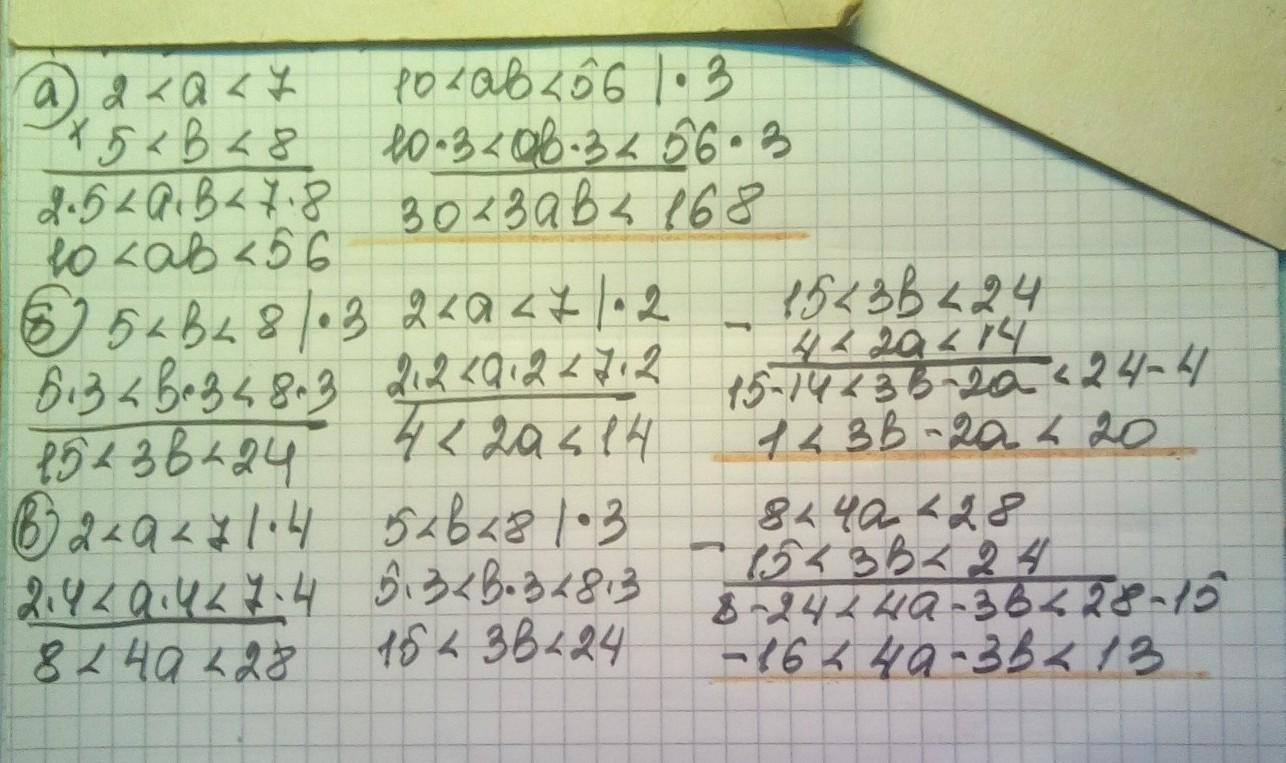 а) 2 < a < 7
× 5 < b < 8
2·5 < a·b < 7·8
10 < ab < 56
10 < ab < 56 | · 3
10·3 < ab·3 < 56·3
30 < 3ab < 168
б) 5 < b < 8 | · 3
5·3 < b·3 < 8·3
15 < 3b < 24
2 < a < 7 | · 2
2·2 < a·2 < 7·2
4 < 2a < 14
- 15 < 3b < 24
4 < 2a < 14
15-14 < 3b-2a < 24-4
1 < 3b-2a < 20
в) 2 < a < 7 | · 4
2·4 < a·4 < 7·4
8 < 4a < 28
5 < b < 8 | · 3
5·3 < b·3 < 8·3
15 < 3b < 24
- 8 < 4a < 28
15 < 3b < 24
8-24 < 4a-3b < 28-15
-16 < 4a-3b < 13